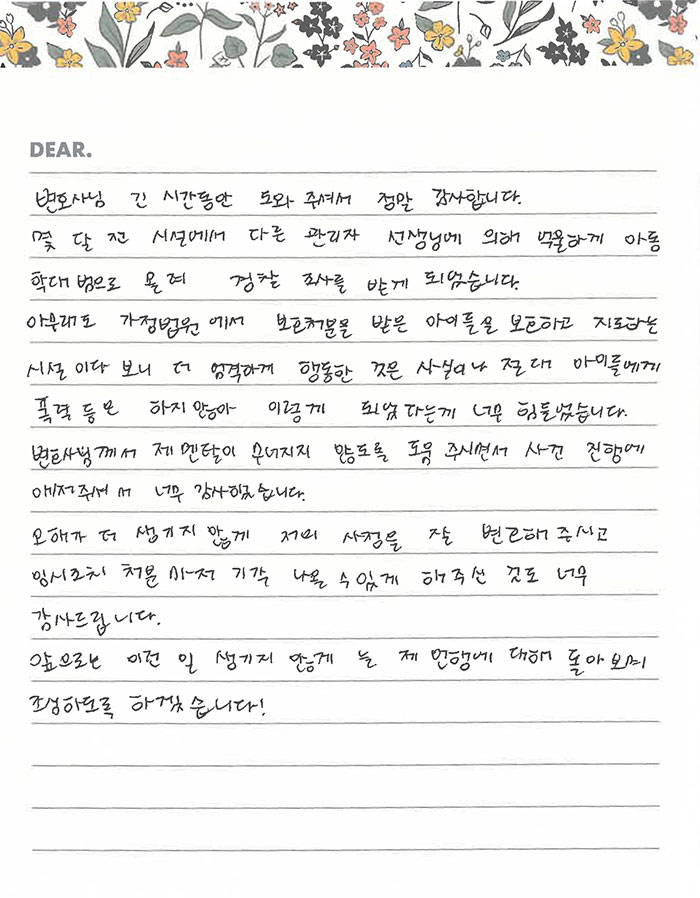 DEAR.
변호사님 긴 시간동안 도와 주셔서 정말 감사합니다.
몇 달 전 시설에서 다른 관리자 선생님에 의해 억울하게 아동
학대범으로 몰려 경찰 조사를 받게 되었습니다.
아무래도 가정법원에서 보호처분을 받은 아이들을 보호하고 지도하는
시설이다 보니 더 엄격하게 행동한 것은 사실이나 절대 아이들에게
폭력 등은 하지 않아 이렇게 되었다는게 너무 힘들었습니다.
변호사님께서 제 멘탈이 무너지지 않도록 도움 주시면서 사건 진행에
애써주셔서 너무 감사했습니다.
오해가 더 생기지 않게 저의 사정을 잘 변론해 주시고
임시조치 처분마저 기각 나올 수 있게 해주신 것도 너무
감사드립니다.
앞으로는 이런 일 생기지 않게 늘 제 언행에 대해 돌아보며
조심하도록 하겠습니다!